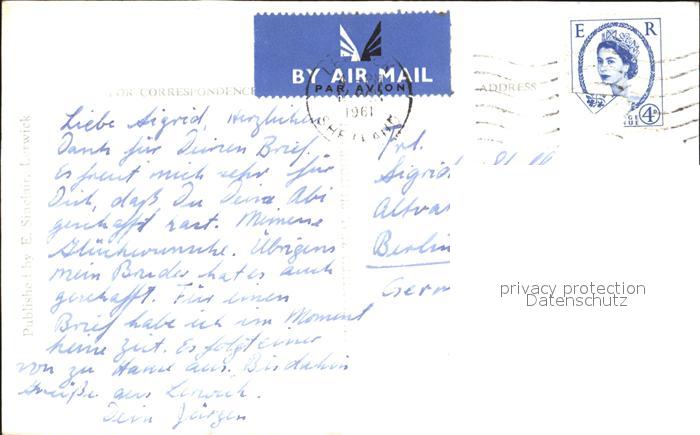 BY AIR MAIL
PAR AVION
E R
4D
1961
SHETLAND
FOR CORRESPONDENCE
ADDRESS
Published by E. Sinclair, Lerwick
Liebe Sigrid, Herzlichen
Dank für Deinen Brief.
Es freut mich sehr für
Dich, daß Du Deine Abi
geschafft hast. Meine
Glückwünsche. Übrigens
mein Bruder hat es auch
geschafft. Für einen
Brief habe ich im Moment
keine Zeit. Es folgt einer
von zu Hause aus. Bis dahin
Grüße aus Lerwick.
Dein Jürgen
Frl.
Sigrid
Berlin
Germ
privacy protection
Datenschutz